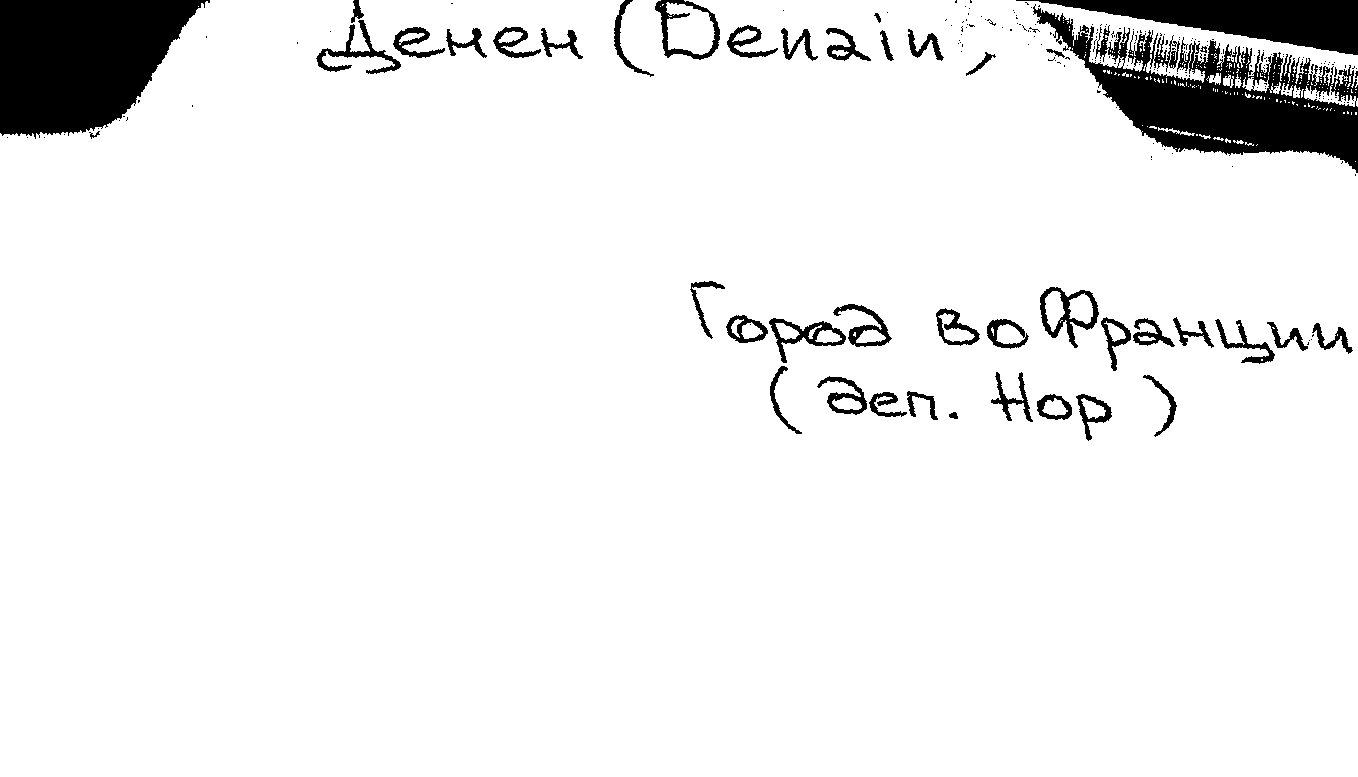 Денен (Denain,
Город во Франции
(деп. Нор)